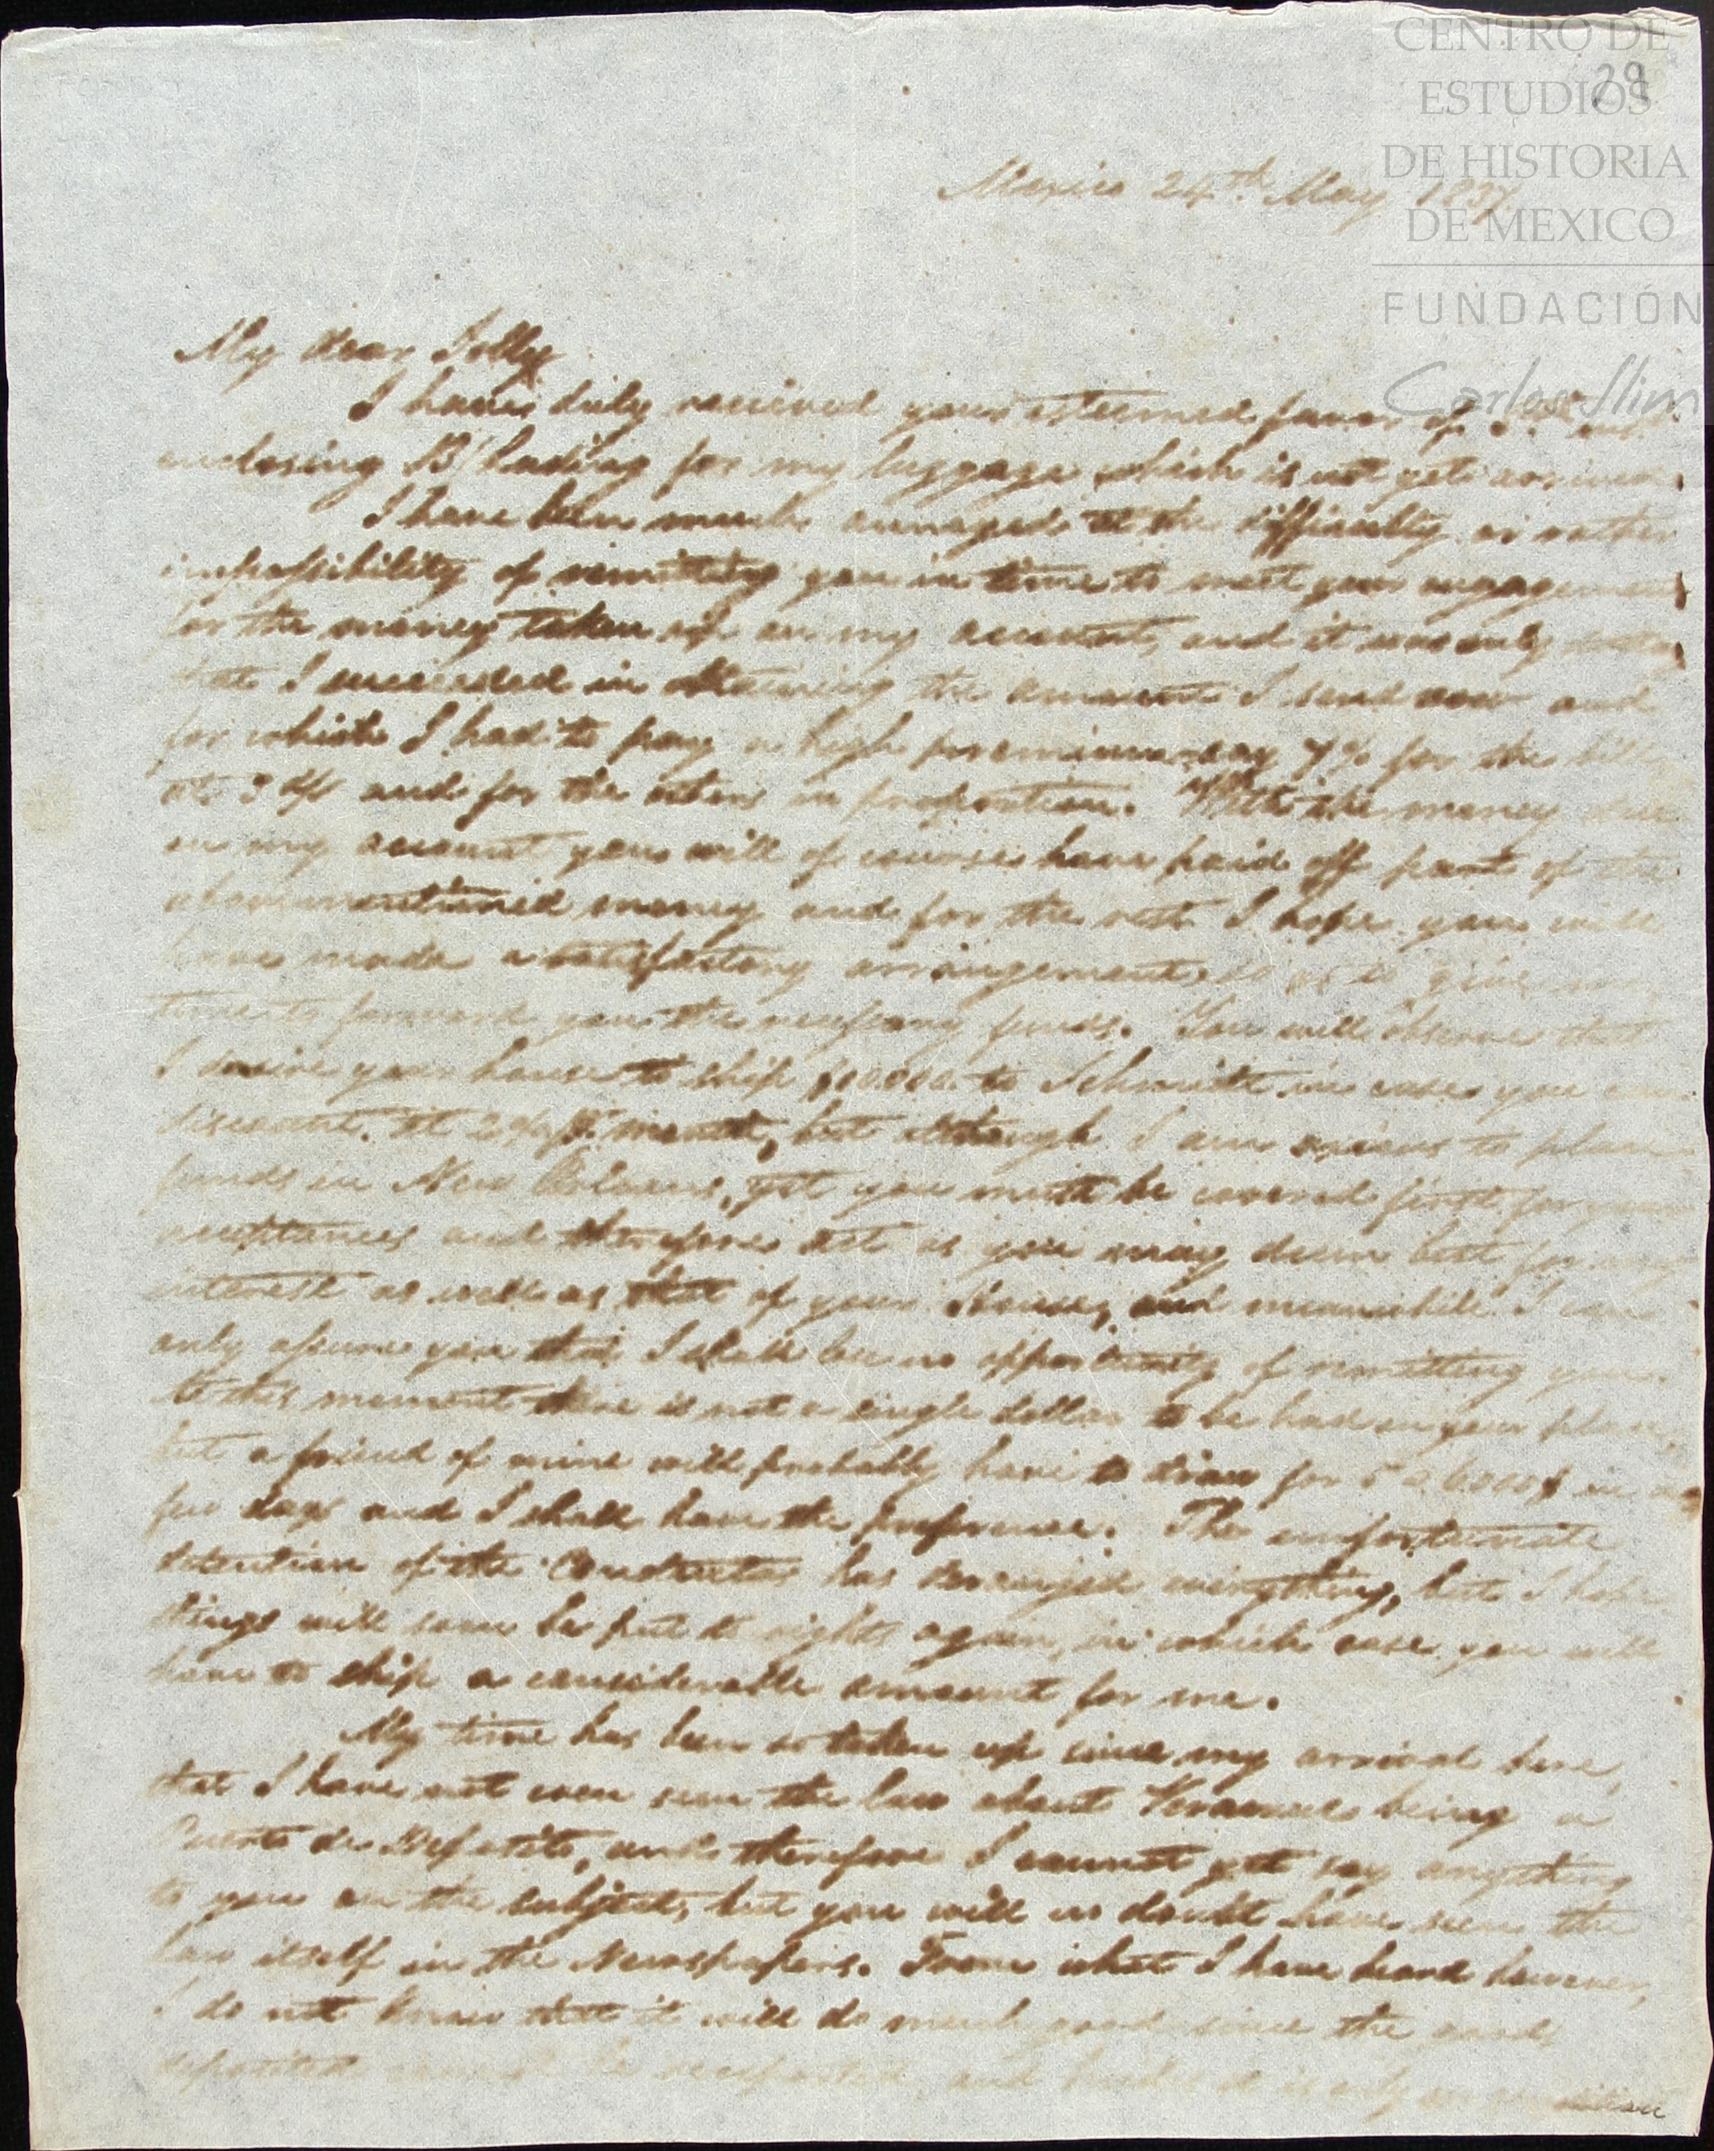 CENTRO DE
ESTUDIOS
DE HISTORIA
DE MEXICO
FUNDACIÓN
Carlos Slim
29
Mexico 24th. May 1837
My dear
I have duly received your esteemed favor of
enclosing B/Lading for my luggage which is not yet arrived.
I have been much annoyed at the difficulty or rather
impossibility of remitting you in time to meet your engagements
for the money taken up on my account, and it was only
that I succeeded in obtaining the amount I send now and
for which I had to pay a high premium say 7% for the bills
at 3 d/s and for the others in proportion. With the money due
on my account you will of course have paid off part of the
abovementioned money and for the rest I hope you will
have made a satisfactory arrangement so as to give me
time to forward you the necessary funds. You will observe that
I desire your house to ship to Schmidt in case you can
discount at 2% p. month, but although I am anxious to place
funds in New Orleans, yet you must be covered first for your
acceptances and therefore act as you may deem best for my
interest as well as that of your House, and meanwhile I can
only assure you that I shall lose no opportunity of remitting you.
At this moment there is not a single dollar to be had on your place,
but a friend of mine will probably have to draw for 5 a 6000$ in a
few days and I shall have the preference. The unfortunate
detention of the Conducta has deranged everything, but I hope
things will soon be put to rights again, in which case you will
have to ship a considerable amount for me.
My time has been so taken up since my arrival here,
that I have not even seen the law about Veracruz being a
Puerto de Deposito, and therefore I cannot yet say anything
to you on the subject, but you will no doubt have seen the
law itself in the Newspapers. From what I have heard however,
I do not know that it will do much good since the goods
deposited cannot be reexported and besides it is only on